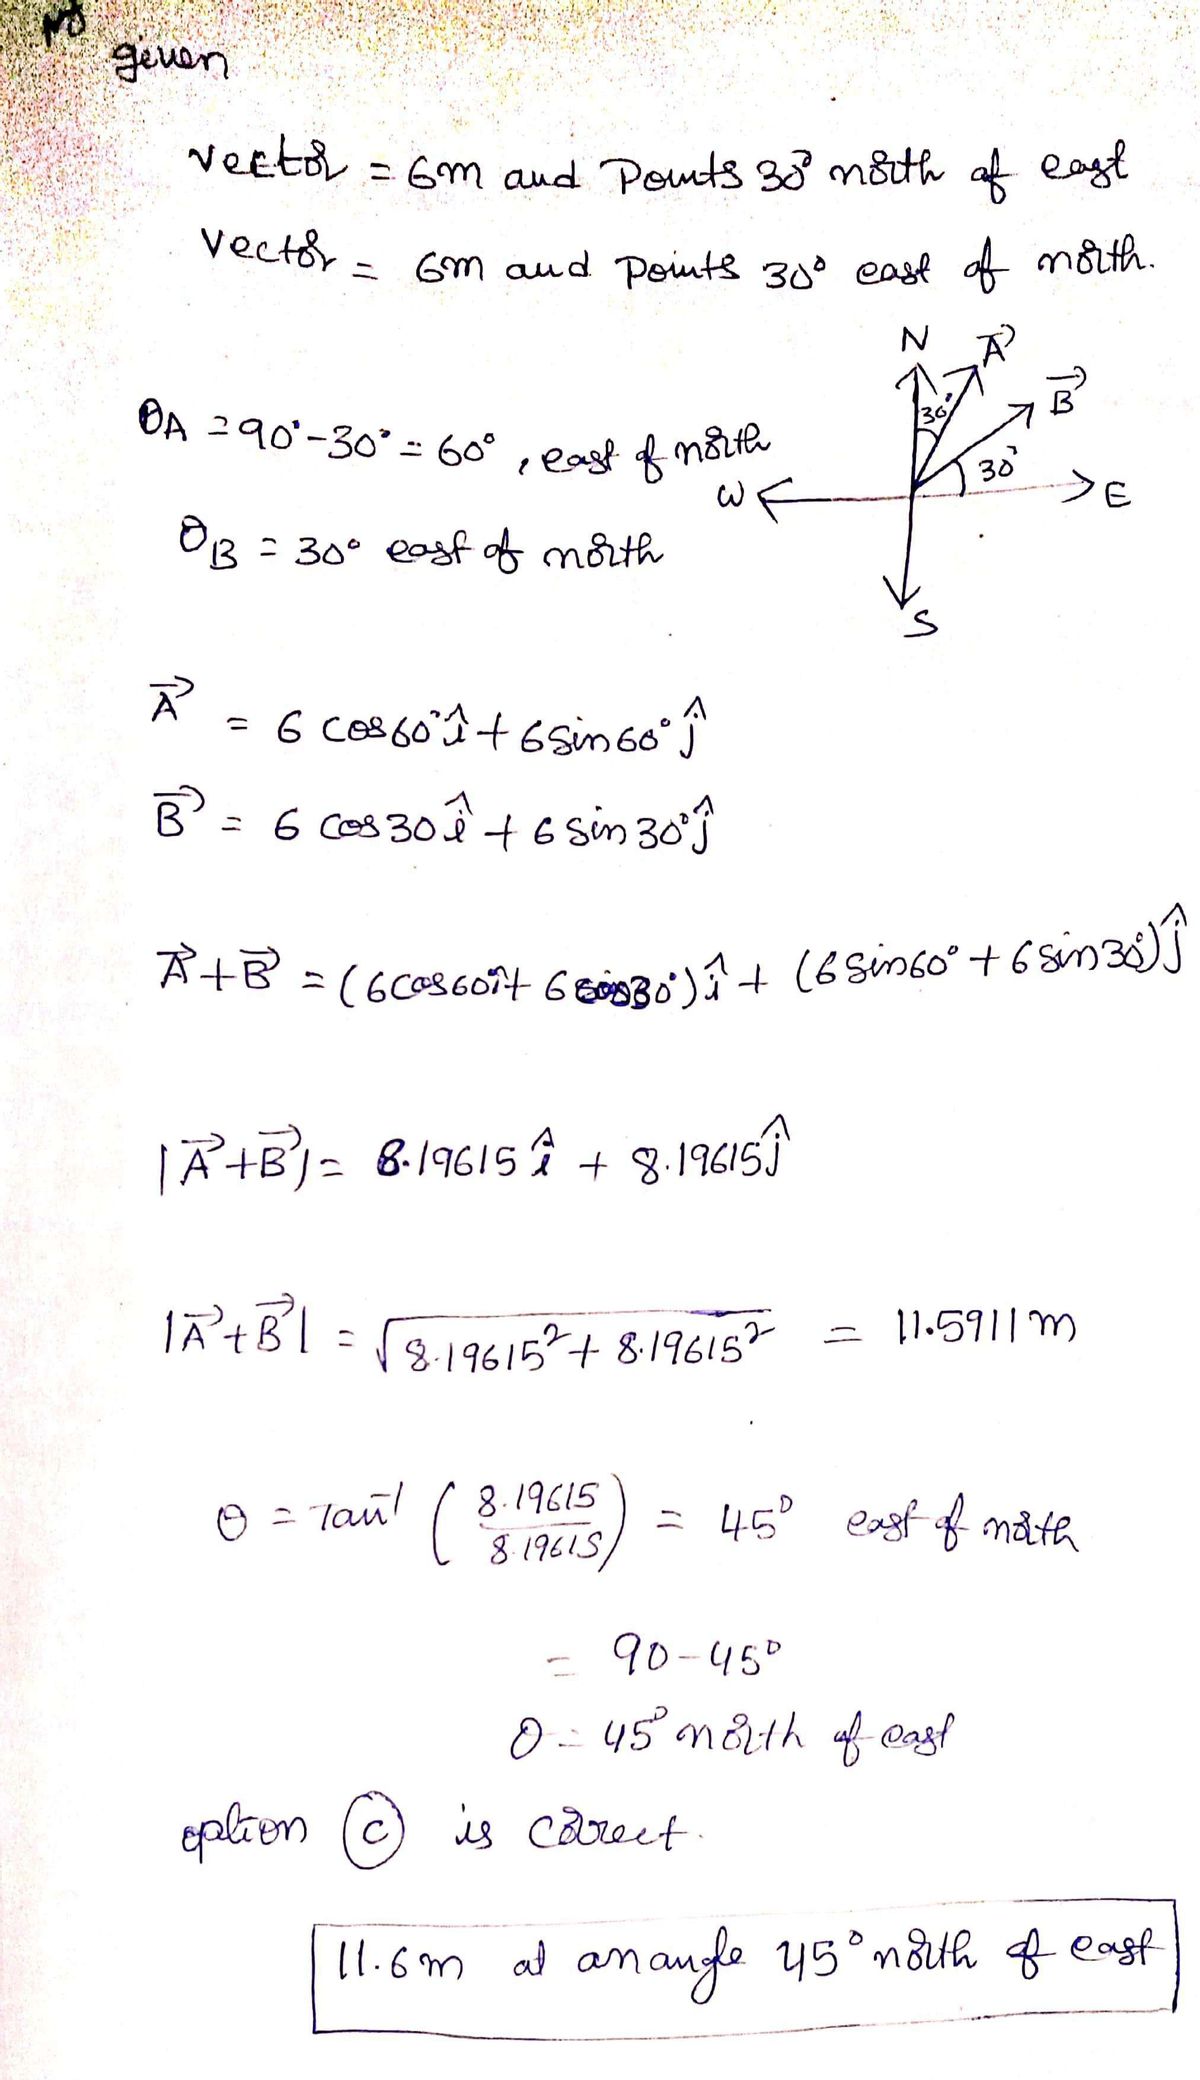 given
vector = 6m and Points 30° north of east
vector = 6m and Points 30° east of north.
N A⃗
B⃗
30°
30°
W E
S
θA = 90° - 30° = 60° , east of north
θB = 30° east of north
A⃗ = 6 cos60° î + 6 sin60° ĵ
B⃗ = 6 cos30 î + 6 sin30° ĵ
A⃗ + B⃗ = (6cos60î + 6cos30°) î + (6sin60° + 6sin30°) ĵ
|A⃗ + B⃗| = 8.19615 î + 8.19615 ĵ
|A⃗ + B⃗| = √(8.19615² + 8.19615²) = 11.5911 m
θ = Tan⁻¹ (8.19615 / 8.19615) = 45° east of north
= 90 - 45°
θ = 45° north of east
option (c) is correct.
11.6m at an angle 45° north of east